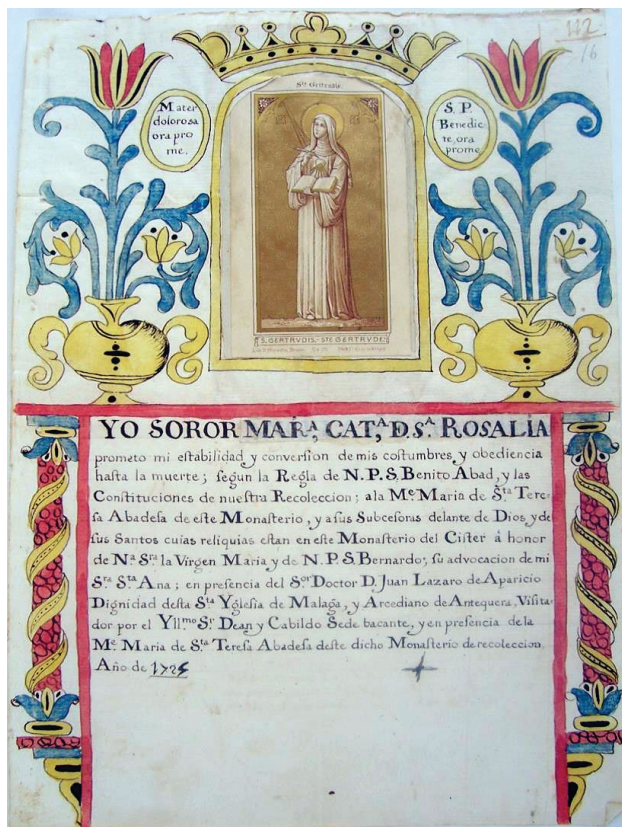 112
16
Sta Gertrudis.
Mater
dolorosa
ora pro
me.
S. P.
Benedic-
te, ora
prome
S. GERTRUDIS.- STE GERTRUDE.
YO SOROR MARª, CATª, D. Sª. ROSALIA
prometo mi estabilidad y conversion de mis costumbres, y obediencia
hasta la muerte; segun la Regla de N. P. S, Benito Abad, y las
Constituciones de nuestra Recoleccion; a la Me Maria de Sta Tere-
sa Abadesa de este Monasterio, y asus Subcesoras delante de Dios, y de
sus Santos cuias reliquias estan en este Monasterio del Cister á honor
de Nª Sra la Virgen Maria, y de N. P. S. Bernardo; su advocacion de mi
Sra Sta Ana; en presencia del Sor Doctor D. Juan Lazaro de Aparicio
Dignidad desta Sta Yglesia de Malaga, y Arcediano de Antequera, Visita-
dor por el Yllmo Sr Dean y Cabildo Sede bacante, y en presencia de la
Me Maria de Sta Teresa Abadesa deste dicho Monasterio de recoleccion
Año de 1725